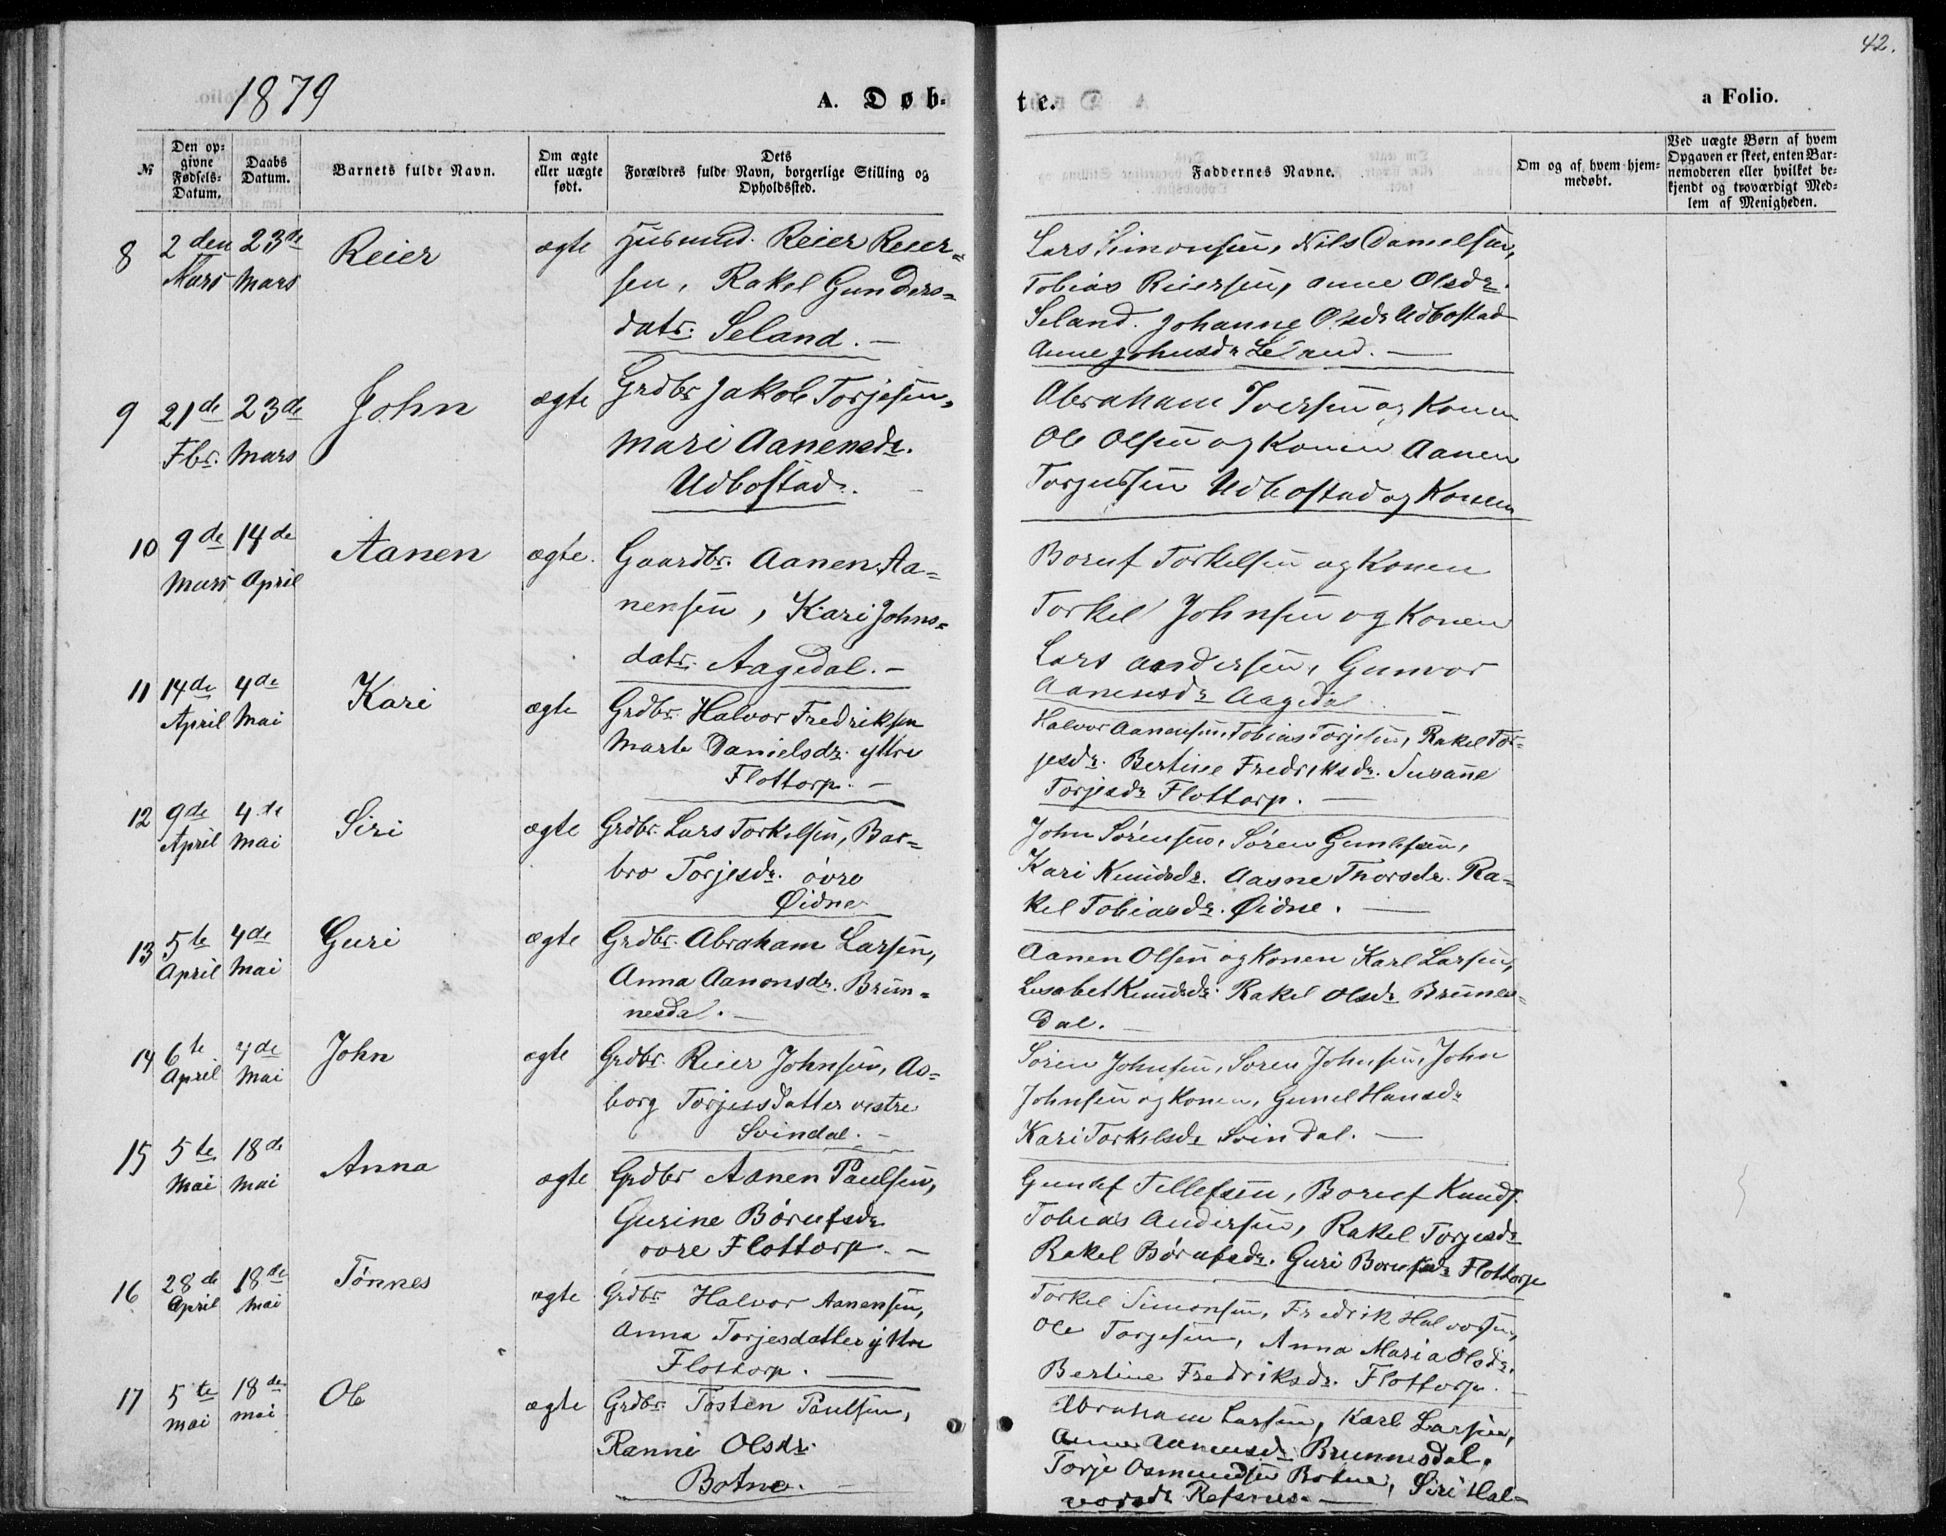 42.
1879
A. Døb-
te.
a Folio.
№
Den op-
givne
Fødsels-
Datum.
Daabs
Datum.
Barnets fulde Navn.
Om ægte
eller uægte
født.
Dets
Forældres fulde Navn, borgerlige Stilling og
Opholdssted.
Faddernes Navne.
Om og af hvem hjem-
medøbt.
Ved uægte Børn af hvem
Opgaven er skeet, enten Bar-
nemoderen eller hvilket be-
kjendt og troværdigt Med-
lem af Menigheden.
8 2den Mars 23de Mars Reier ægte
Husmd. Reier Reier-
sen, Rakel Gunders-
datr. Seland. —
Lars Simonsen, Nils Danielsen,
Tobias Reiersen, Anne Olsdr.
Seland. Johanne Olsdr Udbostad
Anne Johnsdr Seland. —
9 21de Fbr. 23de Mars John ægte
Grdbr Jakob Torjesen,
Mari Aanensdr.
Udbostad. —
Abraham Iversen og Konen
Ole Olsen og Konen Aanen
Torjussen Udbostad og Konen
10 9de Mars 14de April Aanen ægte.
Gaardbr. Aanen Aa-
nensen, Kari Johns-
datr. Aagedal. —
Boruf Torkelsen og Konen
Torkel Johnsen og Konen
Lars Andersen, Gunvor
Aanensdr Aagedal
11 14de April 4de Mai Kari ægte
Grdbr. Halvor Fredriksen
Marte Danielsdr. yttre
Flottorp. —
Halvor Aanensen, Tobias Torjesen, Rakel Tor-
jesdr. Bertine Fredriksdr. Susane
Torjesdr Flottorp. —
12 9de April 4de Mai Siri ægte
Grdbr. Lars Torkelsen, Bar-
bro Torjesdr. øvre
Øidne
John Sørensen, Søren Gunlefsen,
Kari Knudsdr. Aasne Thorsdr. Ra-
kel Tobiasdr. Øidne. —
13 5te April 4de Mai Guri ægte
Grdbr. Abraham Larsen,
Anna Aanonsdr. Brun-
nesdal. —
Aanen Olsen og Konen Karl Larsen,
Lisabet Knudsdr. Rakel Olsdr Brunes-
dal. —
14 6te April 4de Mai John ægte
Grdbr. Reier Johnsen, As-
borg Torjusdatter vestre
Svindal. —
Søren Johnsen, Soren Johnsen, John
Johnsen og Konen, Gunel Hansdr
Kari Torkelsdr Svindal. —
15 5te Mai 18de Mai Anna ægte
Grdbr Aanen Paulsen,
Gurine Børufsdr
øvre Flottorp. —
Gunlef Tellefsen, Boruf Knuds.
Tobias Andersen, Rakel Torjesdr
Rakel Børufsdr. Guri Borufsdr Flottorp
16 28de April 18de Mai Tønnes ægte
Grdbr Halvor Aanensen,
Anna Torjesdatter yttre
Flottorp. —
Torkel Simonsen, Fredrik Halvorsen,
Ole Torjesen, Anna Maria Olsdr.
Bertine Fredriksdr. Flottorp. —
17 5te Mai 18de Mai Ole ægte
Grdbr. Tosten Paulsen,
Ranni Olsdr.
Botne. —
Abraham Larsen, Karl Larsen,
Anne Aanensdr Brunnesdal.
Torje Osmundsen Botne, Siri Hal-
vorsdr —